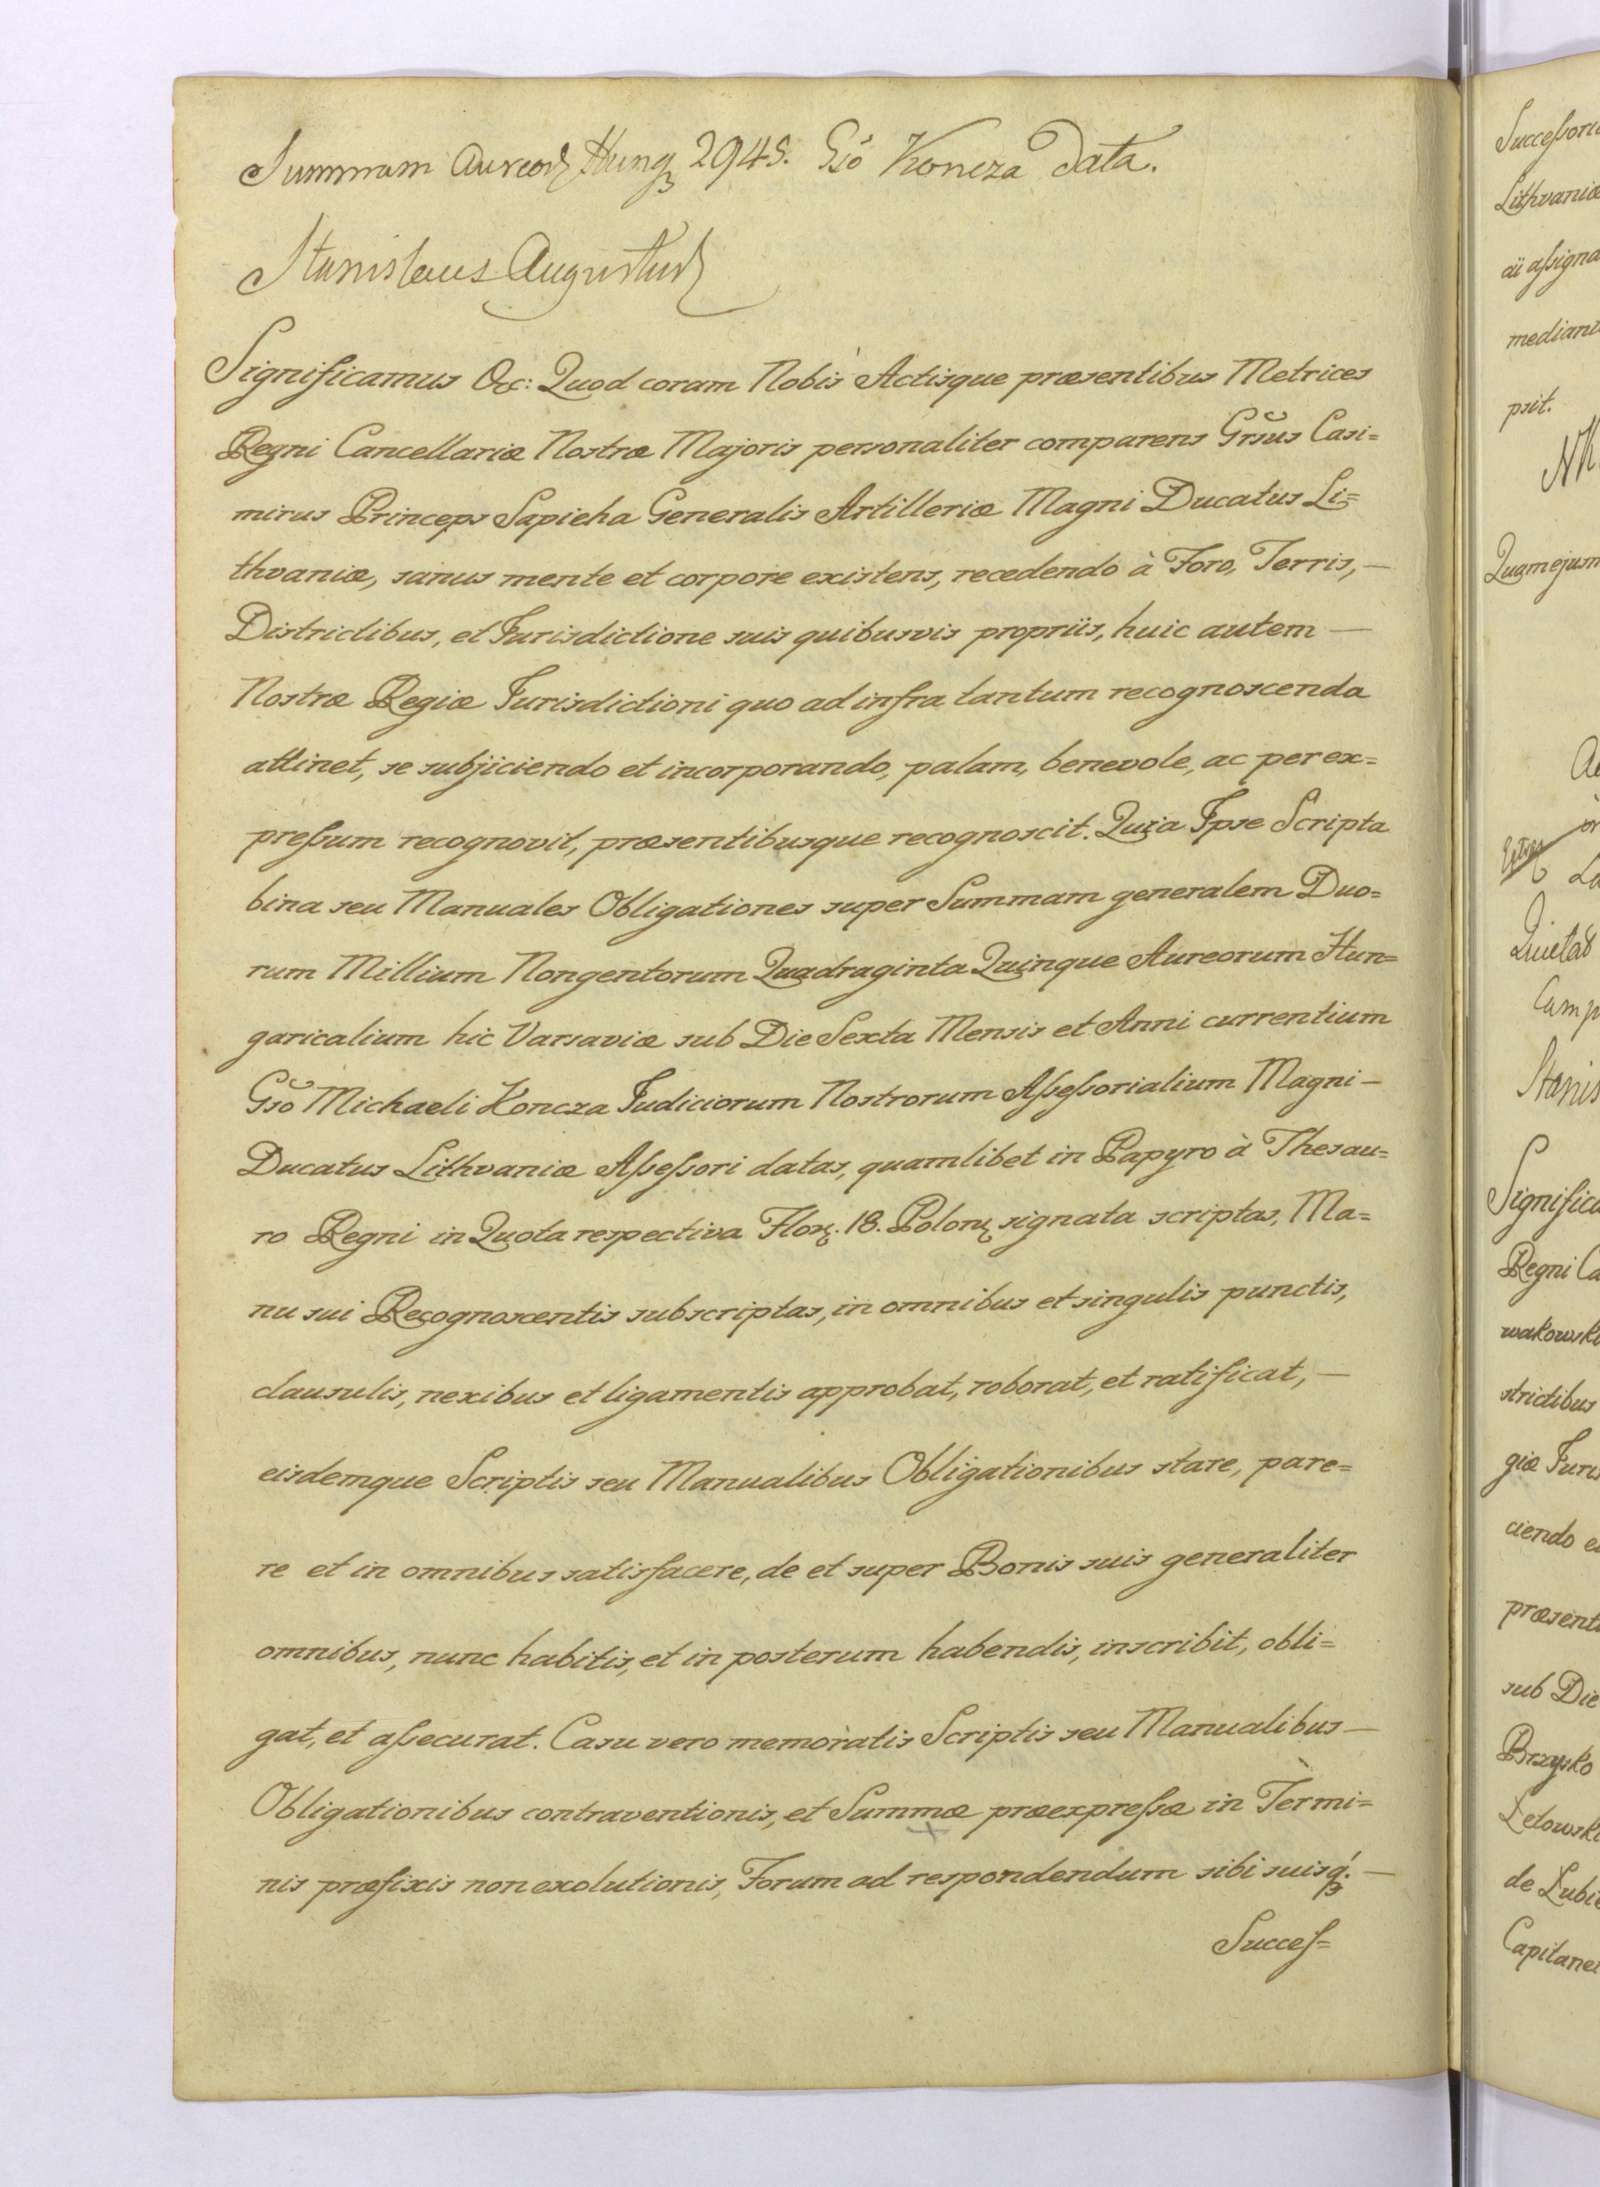 Summam Aureoꝝ Hungꝫ 2945. Gſo Koncza data.
Stanislaus Augustus
Significamus &c: Quod coram Nobis Actisque præsentibus Metrices
Regni Cancellariæ Nostræ Majoris personaliter comparens Grsus Casi=
mirus Princeps Sapieha Generalis Artilleriæ Magni Ducatus Li=
thvaniæ, sanus mente et corpore existens, recedendo à Foro, Terris, —
Districtibus, et Jurisdictione suis quibusvis propriis, huic autem —
Nostræ Regiæ Jurisdictioni quo ad infra tantum recognoscenda
attinet, se subjiciendo et incorporando, palam, benevole, ac per ex=
preſsum recognovit, præsentibusque recognoscit. Quia Ipse Scripta
bina seu Manuales Obligationes super Summam generalem Duo=
rum Millium Nongentorum Quadraginta Quinque Aureorum Hun=
garicalium hic Varsaviæ sub Die Sexta Mensis et Anni currentium
Gso Michaeli Koncza Judiciorum Nostrorum Aſseſsorialium Magni —
Ducatus Lithvaniæ Aſseſsori datas, quamlibet in Papyro à Thesau=
ro Regni in Quota respectiva Florꝫ. 18. Polonꝫ signata scriptas, Ma=
nu sui Recognoscentis subscriptas, in omnibus et singulis punctis,
clausulis, nexibus et ligamentis approbat, roborat, et ratificat, —
eisdemque Scriptis seu Manualibus Obligationibus stare, pare=
re et in omnibus satisfacere, de et super Bonis suis generaliter
omnibus, nunc habitis, et in posterum habendis, inscribit, obli=
gat, et aſsecurat. Casu vero memoratis Scriptis seu Manualibus —
Obligationibus contraventionis, et Summæ præexpreſsæ in Termi=
nis præfixis non exolutionis, Forum ad respondendum sibi suisqꝫ. —
Succeſ=
Succeſsori
Lithvaniæ
aſsigna
psit.
Quam ejusm
Quietat
Stanis
Significa
Regni Ca
wakowsk
strictibus
giæ Juris
ciendo e
præsent
sub Die
Brzysko
Letowsk
de Lubi
Capitane